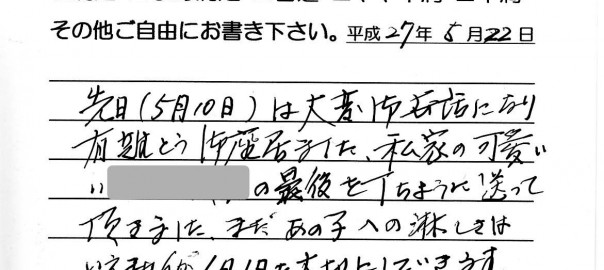 その他ご自由にお書き下さい。平成27年 5月22日
先日(5月10日)は大変御世話になり
有難とう御座居ました、私家の可愛い
の最後を丁ちように送って
頂きました、まだあの子への淋しさは
1日1日を大切にして